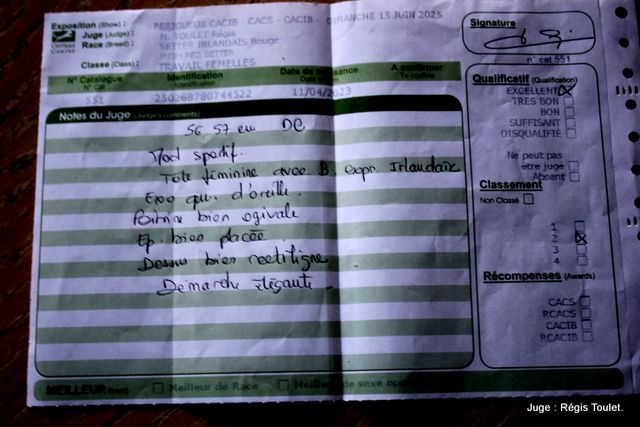 Exposition (Show) : PERIGUEUX CACIB - CACS - CACIB - DIMANCHE 15 JUIN 2025
Juge (Judge) : N. TOULET Régis
Race (Breed) : SETTER IRLANDAIS Rouge
IRISH RED SETTER
Classe (Class) : TRAVAIL FEMELLES
CENTRALE CANINE
N° Catalogue
N° Cat
Identification
Date de naissance
A confirmer
To confirm
551 250268780744522 11/04/2023
Notes du Juge (Judge's comments)
56.57 cm DC
Mod sportif.
Tete féminine avec B. expr. Irlandaise
Exc qu. d'oreille.
Poitrine bien ogivale
Ep. bien placée
Dessus bien rectiligne
Démarche élégante
MEILLEUR (best) Meilleur de Race / Meilleur de sexe
Signature
n° cat 551
Qualificatif (Qualification)
EXCELLENT
TRES BON
BON
SUFFISANT
DISQUALIFIE
Ne peut pas
etre jugé
Absent
Classement
Non Classé
1
2
3
4
Récompenses (Awards)
CACS
RCACS
CACIB
RCACIB
Juge : Régis Toulet.